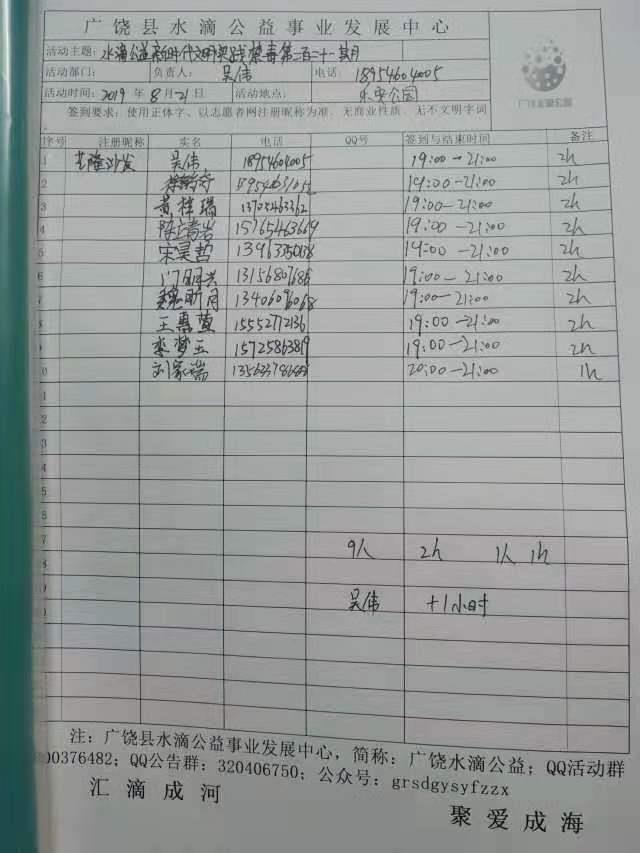 广饶县水滴公益事业发展中心
活动主题: 水滴公益新时代文明实践禁毒第二百二十一期
活动部门: 负责人: 吴伟 电话: 18954604005
活动时间: 2019 年 8月21日 活动地点: 乐安公园
签到要求: 使用正体字、以志愿者网注册昵称为准、无商业性质、无不文明字词
广饶水滴公益
序号 注册昵称 实名 电话 QQ号 签到与结束时间 备注
1 吴伟 18954604005 19:00-21:00 2h
2 19:00-21:00 2h
3 黄梓瑞 13705463362 19:00-21:00 2h
4 15765463669 19:00-21:00 2h
5 宋昊哲 19:00-21:00 2h
6 13156807686 19:00-21:00 2h
7 魏昕月 13406096068 19:00-21:00 2h
8 王惠萱 15552772136 19:00-21:00 2h
9 李梦玉 15725863819 19:00-21:00 2h
0 刘家瑞 20:00-21:00 1h
1
2
3
4
5
6
7 9人 2h 1人 1h
8
9 吴伟 +1小时
0
注: 广饶县水滴公益事业发展中心, 简称: 广饶水滴公益; QQ活动群
00376482; QQ公告群: 320406750; 公众号: grsdgysyfzzx
汇滴成河 聚爱成海